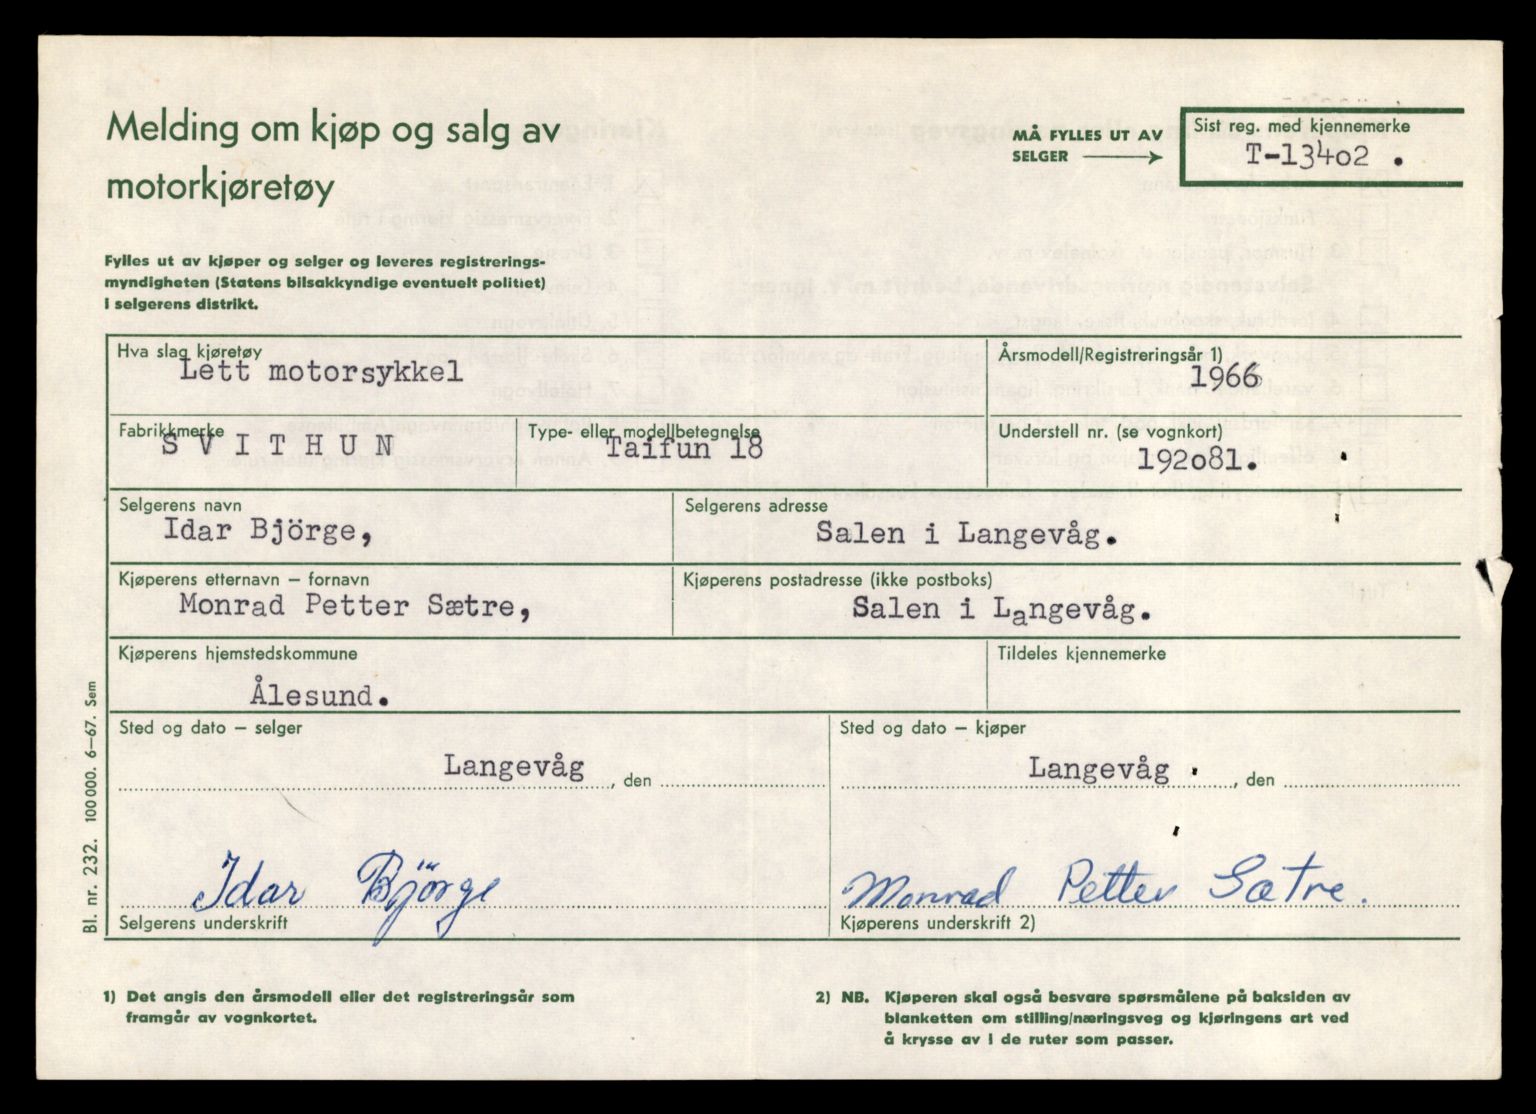 Melding om kjøp og salg av
motorkjøretøy
MÅ FYLLES UT AV
SELGER
Sist reg. med kjennemerke
T-13402 .
Fylles ut av kjøper og selger og leveres registrerings-
myndigheten (Statens bilsakkyndige eventuelt politiet)
i selgerens distrikt.
Hva slag kjøretøy
Lett motorsykkel
Årsmodell/Registreringsår 1)
1966
Fabrikkmerke
S V I T H U N
Type- eller modellbetegnelse
Taifun 18
Understell nr. (se vognkort)
192o81.
Selgerens navn
Idar Björge,
Selgerens adresse
Salen i Langevåg.
Kjøperens etternavn – fornavn
Monrad Petter Sætre,
Kjøperens postadresse (ikke postboks)
Salen i Langevåg.
Kjøperens hjemstedskommune
Ålesund.
Tildeles kjennemerke
Sted og dato – selger
Langevåg , den
Sted og dato – kjøper
Langevåg , den
Idar Björge
Selgerens underskrift
Monrad Petter Sætre.
Kjøperens underskrift 2)
Bl. nr. 232. 100 000. 6–67. Sem
1) Det angis den årsmodell eller det registreringsår som
framgår av vognkortet.
2) NB. Kjøperen skal også besvare spørsmålene på baksiden av
blanketten om stilling/næringsveg og kjøringens art ved
å krysse av i de ruter som passer.